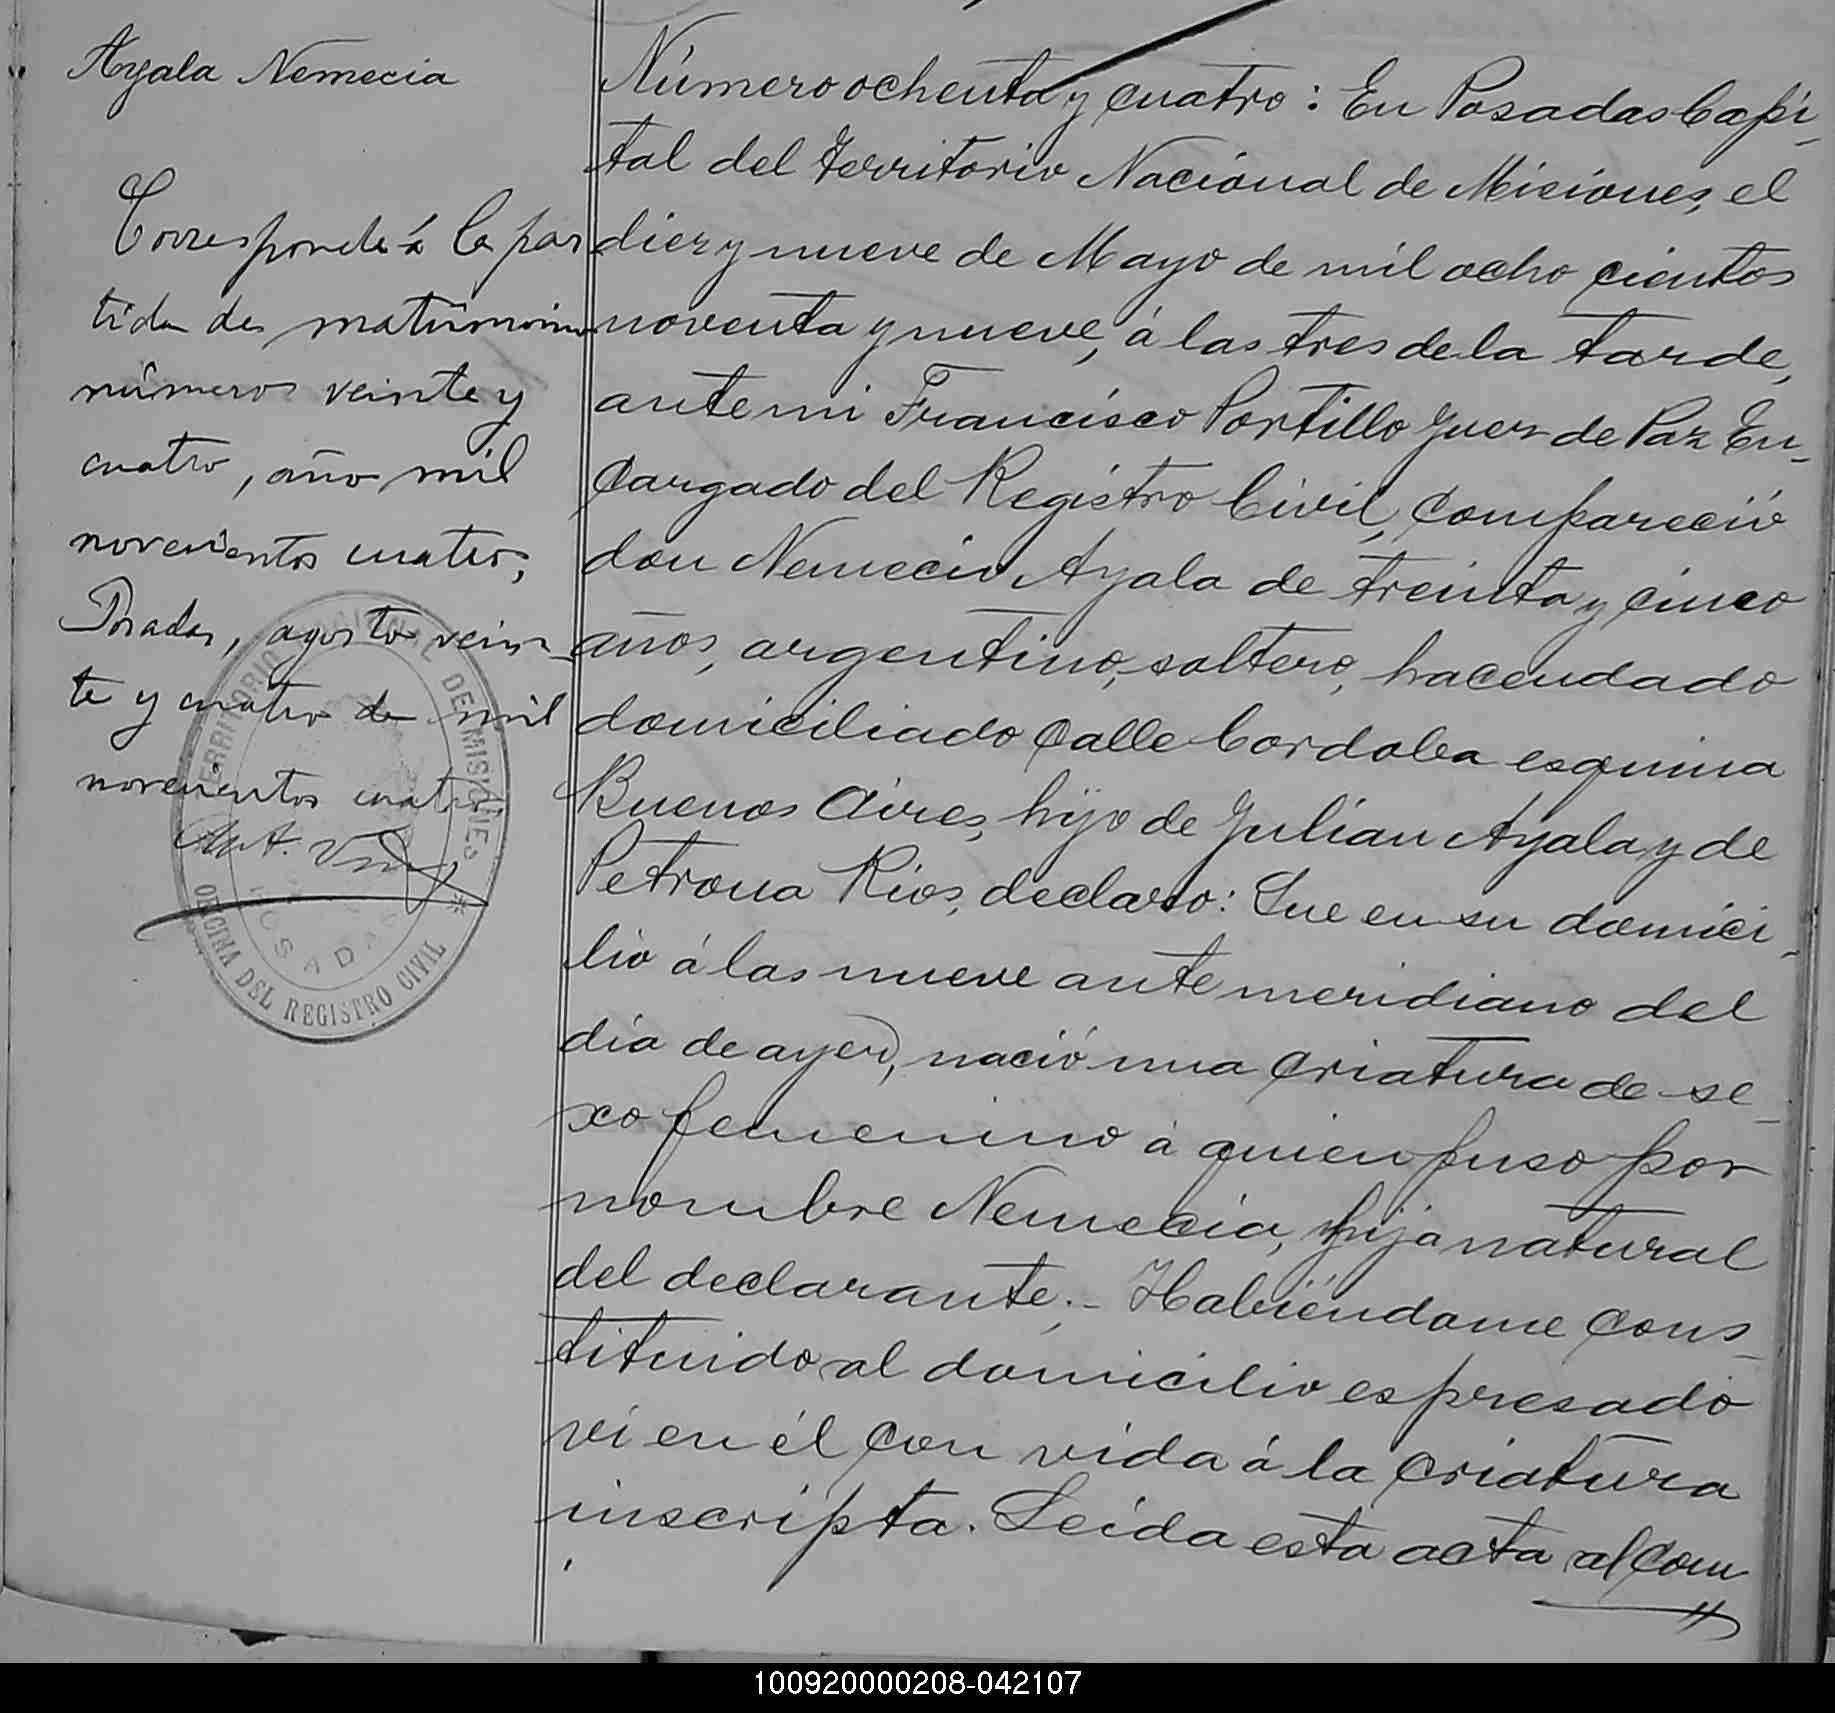 Ayala Nemecia
Corresponde á la par
tida de matrimonio
número veinte y
cuatro, año mil
novecientos cuatro;
Posadas, agosto vein-
te y cuatro de mil
novecientos cuatro
TERRITORIO NACIONAL DE MISIONES
POSADAS
OFICINA DEL REGISTRO CIVIL
Número ochenta y cuatro: En Posadas Capi-
tal del Territorio Nacional de Misiones, el
diez y nueve de Mayo de mil ocho cientos
noventa y nueve, á las tres de la tarde,
ante mi Francisco Portillo Juez de Paz En-
cargado del Registro Civil, compareció
don Nemecio Ayala de treinta y cinco
años, argentino, soltero, hacendado
domiciliado calle Cordoba esquina
Buenos Aires, hijo de Julian Ayala y de
Petrona Rios, declaro: Que en su domici-
lio á las nueve ante meridiano del
día de ayer, nació una criatura de se-
xo femenino á quien puso por
nombre Nemecia, hija natural
del declarante.- Habiéndome cons-
tituido al domicilio espresado
ví en él con vida á la criatura
inscripta. Leida esta acta al com
100920000208-042107